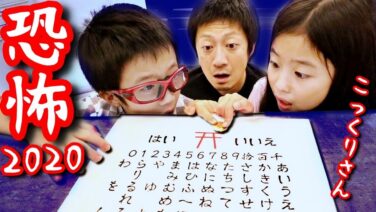 恐怖
2020
こっくりさん
はい いいえ
0123456789拾百千
わらやまはなたさかあ
り みひにちしきい
をるゆむふぬつすくう
れ めへねてせけえ